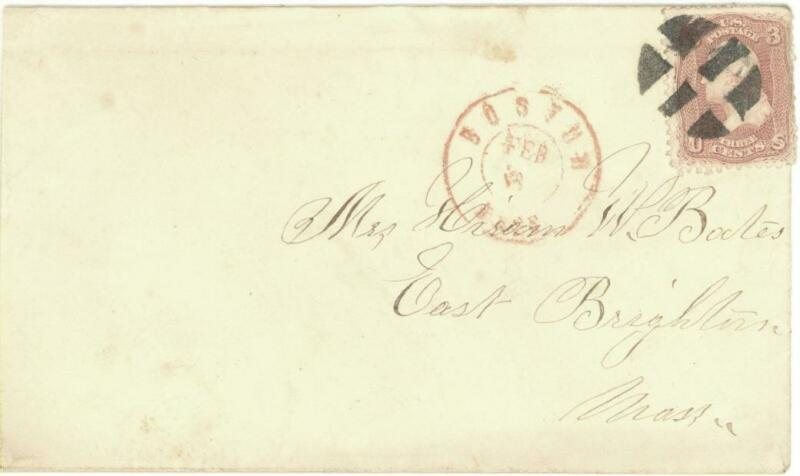 U.S. 3
POSTAGE
U THREE S
CENTS
BOSTON
FEB
MASS
Mrs Hiram W. Bates
East Brighton
Mass